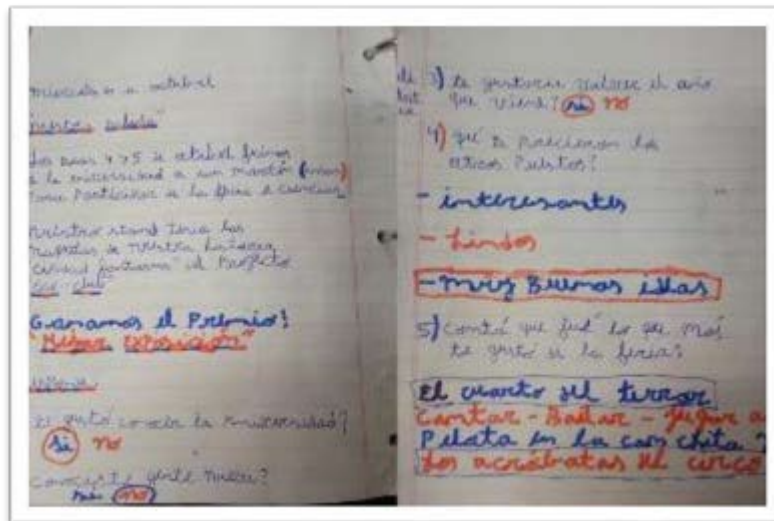 miercoles 11 octubre
Los dias 4 y 5 de octubre fuimos
a la universidad a un
como Participar de la feria de ciencias
nuestro stand tenia las
maquetas de nuestra historia
"Ciudad fantasma" el Proyecto
Ganamos el Premio!
"Mejor EXPOSICION"
te gustó conocer la universidad?
si no
conociste gente nueva?
si no
3) te gustaria volver el año
que viene? si no
4) qué te parecieron los
otros Puestos?
- interesantes
- Lindos
- muy Buenas ideas
5) Contá que fué lo que más
te gustó de la feria?
El cuarto del terror
Cantar - Bailar - Jugar a
Pelota en la canchita
Los acróbatas del circo